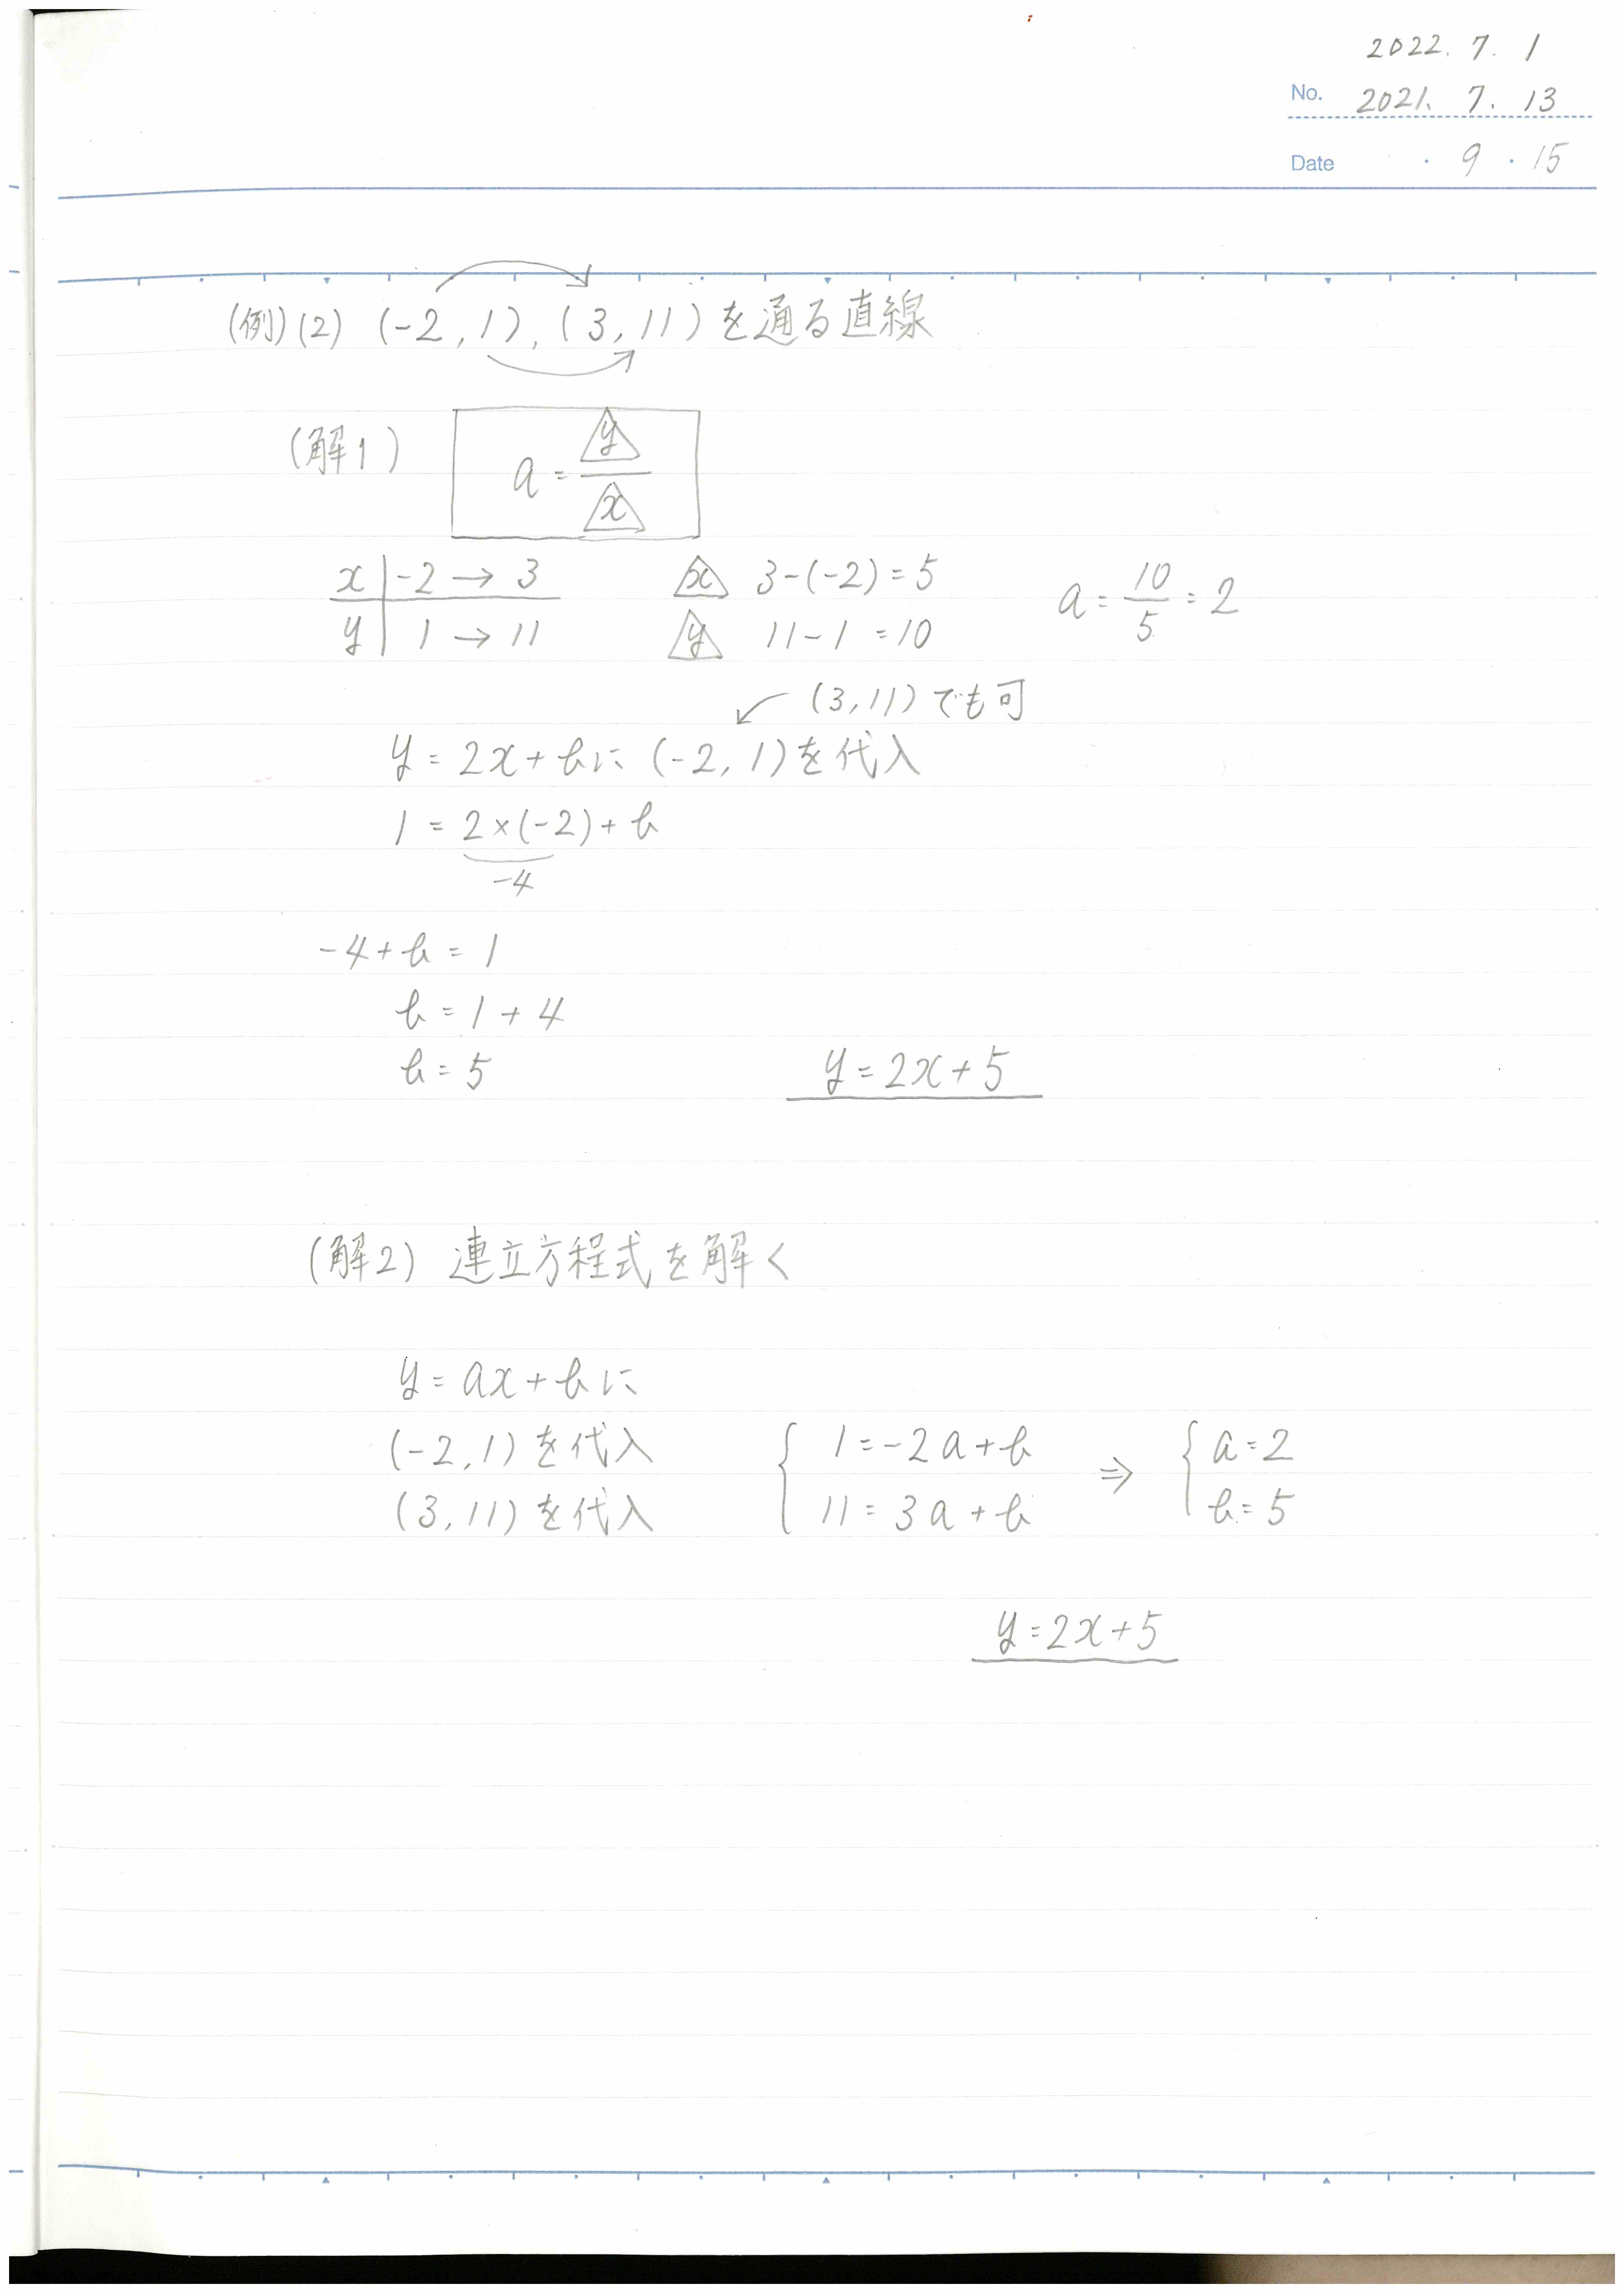 2022. 7. 1
No. 2021. 7. 13
Date ・ 9 ・ 15
(例)(2) (-2, 1), (3, 11) を通る直線
(解1) a = y/x
x -2 → 3 x 3-(-2) = 5 a = 10/5 = 2
y 1 → 11 y 11-1 = 10
(3, 11) でも可
y = 2x + b に (-2, 1) を代入
1 = 2×(-2) + b
-4
-4 + b = 1
b = 1 + 4
b = 5 y = 2x + 5
(解2) 連立方程式を解く
y = ax + b に
(-2, 1) を代入 { 1 = -2a + b ⇒ { a = 2
(3, 11) を代入 11 = 3a + b b = 5
y = 2x + 5